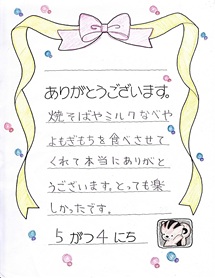 ありがとうございます。
焼そばやミルクなべや
よもぎもちを食べさせて
くれて本当にありがと
うございます。とっても楽
しかったです。
5がつ4にち